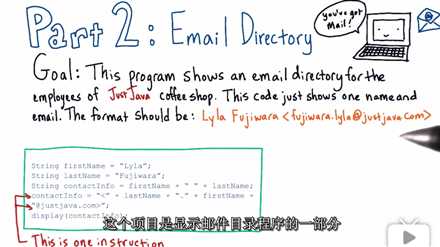 Part 2: Email Directory
you've got
Mail!
Goal: This program shows an email directory for the
employees of JustJava coffee shop. This code just shows one name and
email. The format should be: Lyla Fujiwara <fujiwara.lyla@justjava.com>
String firstName = "Lyla";
String lastName = "Fujiwara";
String contactInfo = firstName + " " + lastName;
contactInfo = "<" + lastName + "." + firstName +
"@justjava.com>";
display(contactInfo);
这个项目是显示邮件目录程序的一部分
This is one instruction